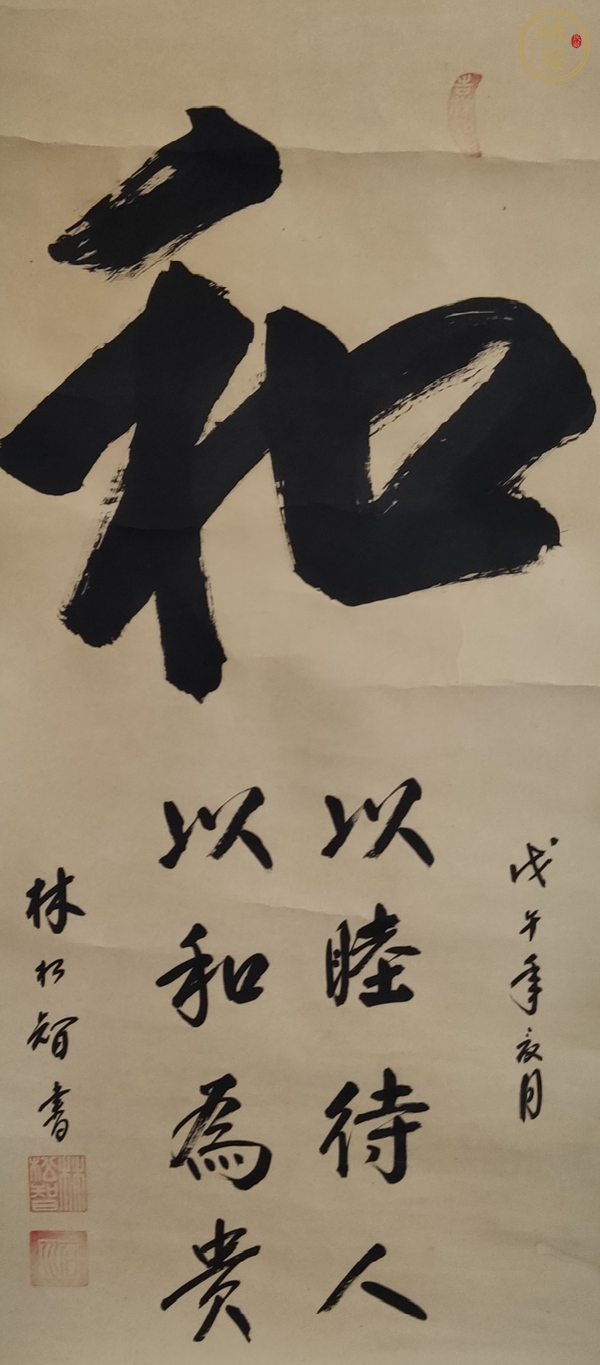 和
戊午年夏月
以睦待人
以和為貴
林松智書
林松智